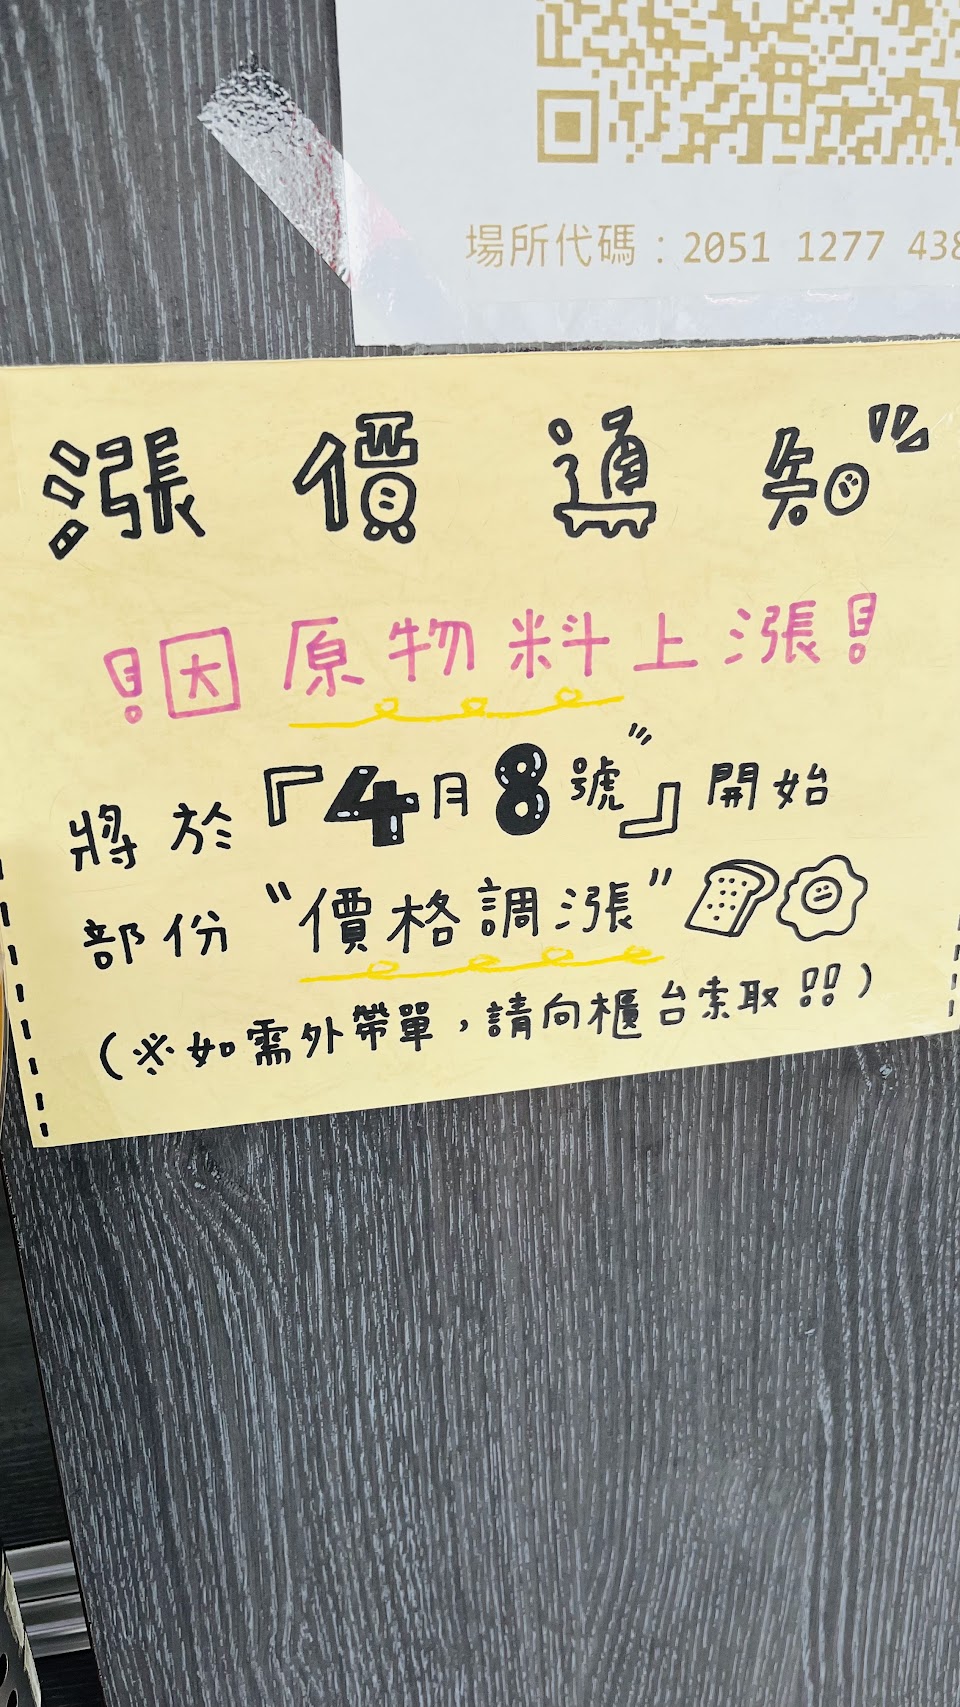 場所代碼：2051 1277 438
漲價通知
!因原物料上漲!
將於『4月8號』開始
部份"價格調漲"
(※如需外帶單，請向櫃台索取!!)